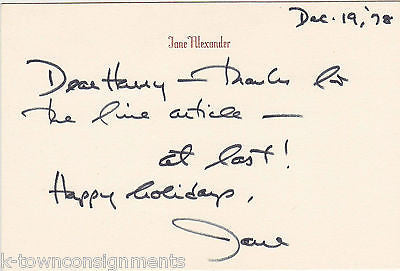 Dec. 19, '78
Jane Alexander
Dear Harry — Thanks for
the fine article —
at last!
Happy holidays,
Jane
k-townconsignments